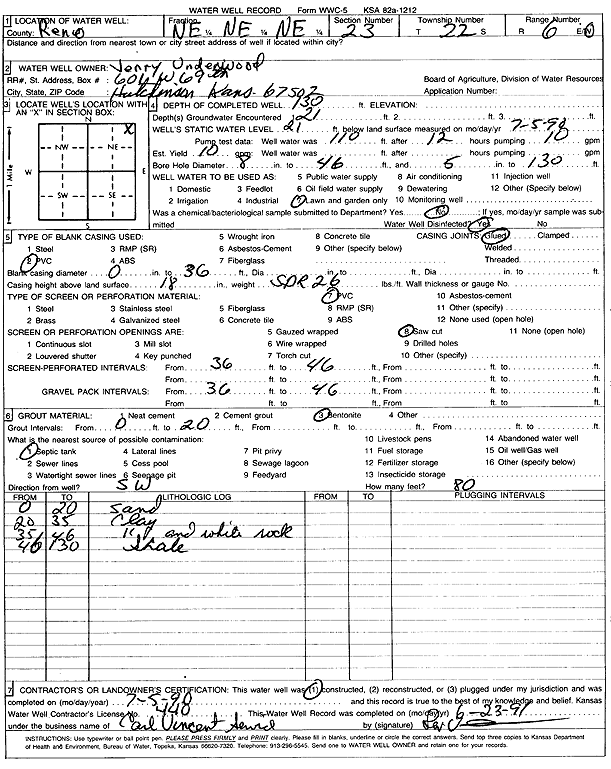 WATER WELL RECORD Form WWC-5 KSA 82a-1212
1 LOCATION OF WATER WELL: Fraction Section Number Township Number Range Number
County: Reno NE ¼ NE ¼ NE ¼ 23 T 22 S R 6 E/W
Distance and direction from nearest town or city street address of well if located within city?
2 WATER WELL OWNER: Jerry Underwood
RR#, St. Address, Box # : 604 W 69th Board of Agriculture, Division of Water Resources
City, State, ZIP Code : Hutchinson Kans 67502 Application Number:
3 LOCATE WELL'S LOCATION WITH AN "X" IN SECTION BOX:
N
X
NW NE
W E
SW SE
S
1 Mile
4 DEPTH OF COMPLETED WELL 130 ft. ELEVATION:
Depth(s) Groundwater Encountered 1 21 ft. 2. ft. 3. ft.
WELL'S STATIC WATER LEVEL 21 ft. below land surface measured on mo/day/yr 7-5-90
Pump test data: Well water was 110 ft. after 12 hours pumping 10 gpm
Est. Yield 10 gpm: Well water was ft. after hours pumping gpm
Bore Hole Diameter 8 in. to 46 ft., and 6 in. to 130 ft.
WELL WATER TO BE USED AS: 5 Public water supply 8 Air conditioning 11 Injection well
1 Domestic 3 Feedlot 6 Oil field water supply 9 Dewatering 12 Other (Specify below)
2 Irrigation 4 Industrial 7 Lawn and garden only 10 Monitoring well
Was a chemical/bacteriological sample submitted to Department? Yes No ; If yes, mo/day/yr sample was submitted
Water Well Disinfected? Yes No
5 TYPE OF BLANK CASING USED: 5 Wrought iron 8 Concrete tile CASING JOINTS: Glued Clamped
1 Steel 3 RMP (SR) 6 Asbestos-Cement 9 Other (specify below) Welded
2 PVC 4 ABS 7 Fiberglass Threaded.
Blank casing diameter 0 in. to 36 ft., Dia in. to ft., Dia in. to ft.
Casing height above land surface 18 in., weight SDR 26 lbs./ft. Wall thickness or gauge No.
TYPE OF SCREEN OR PERFORATION MATERIAL: 7 PVC 10 Asbestos-cement
1 Steel 3 Stainless steel 5 Fiberglass 8 RMP (SR) 11 Other (specify)
2 Brass 4 Galvanized steel 6 Concrete tile 9 ABS 12 None used (open hole)
SCREEN OR PERFORATION OPENINGS ARE: 5 Gauzed wrapped 8 Saw cut 11 None (open hole)
1 Continuous slot 3 Mill slot 6 Wire wrapped 9 Drilled holes
2 Louvered shutter 4 Key punched 7 Torch cut 10 Other (specify)
SCREEN-PERFORATED INTERVALS: From 36 ft. to 46 ft., From ft. to ft.
From ft. to ft., From ft. to ft.
GRAVEL PACK INTERVALS: From 36 ft. to 46 ft., From ft. to ft.
From ft. to ft., From ft. to ft.
6 GROUT MATERIAL: 1 Neat cement 2 Cement grout 3 Bentonite 4 Other
Grout Intervals: From 0 ft. to 20 ft., From ft. to ft., From ft. to ft.
What is the nearest source of possible contamination: 10 Livestock pens 14 Abandoned water well
1 Septic tank 4 Lateral lines 7 Pit privy 11 Fuel storage 15 Oil well/Gas well
2 Sewer lines 5 Cess pool 8 Sewage lagoon 12 Fertilizer storage 16 Other (specify below)
3 Watertight sewer lines 6 Seepage pit 9 Feedyard 13 Insecticide storage
Direction from well? SW How many feet? 80
FROM TO LITHOLOGIC LOG FROM TO PLUGGING INTERVALS
0 20 sand
20 35 Clay
35 46 and white rock
46 130 Shale
7 CONTRACTOR'S OR LANDOWNER'S CERTIFICATION: This water well was (1) constructed, (2) reconstructed, or (3) plugged under my jurisdiction and was
completed on (mo/day/year) 7-5-90 and this record is true to the best of my knowledge and belief. Kansas
Water Well Contractor's License No. 448 This Water Well Record was completed on (mo/day/yr) 6-23-91
under the business name of Carl Vincent by (signature)
INSTRUCTIONS: Use typewriter or ball point pen. PLEASE PRESS FIRMLY and PRINT clearly. Please fill in blanks, underline or circle the correct answers. Send top three copies to Kansas Department
of Health and Environment, Bureau of Water, Topeka, Kansas 66620-7320. Telephone: 913-296-5545. Send one to WATER WELL OWNER and retain one for your records.